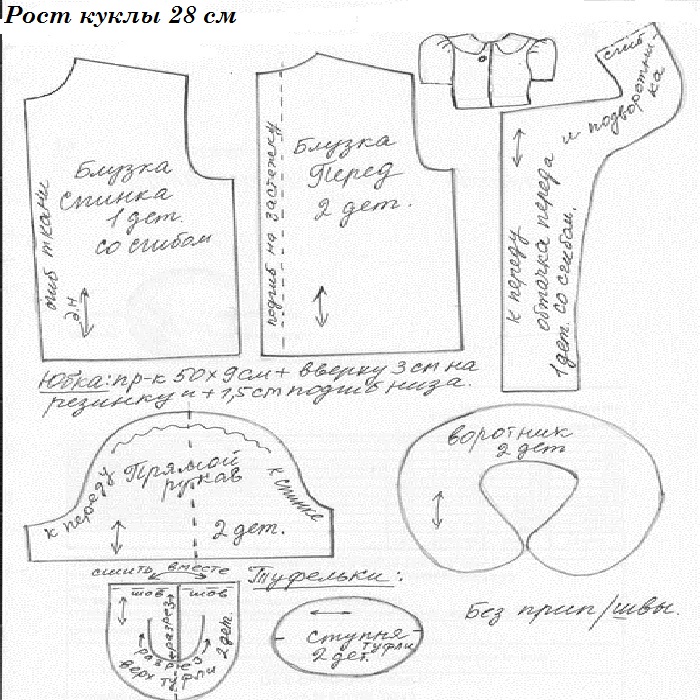 Рост куклы 28 см
Блузка
Спинка
1 дет.
со сгибом
сгиб ткани
Д.Н
Блузка
Перед
2 дет.
подгиб на застежку
сгиб
к переду
обтачка переда и подворотни-
ка
1 дет. со сгибом.
Юбка: пр-к 50х9см + вверху 3 см на
резинку и + 1,5см подгиб низа.
Прямой
рукав
к переду
к спинке
2 дет.
воротник
2 дет
сшить вместе
Туфельки:
шов шов
разрез
разрез
верх туфли 2 дет.
ступня
туфли
2 дет.
Без прип/швы.